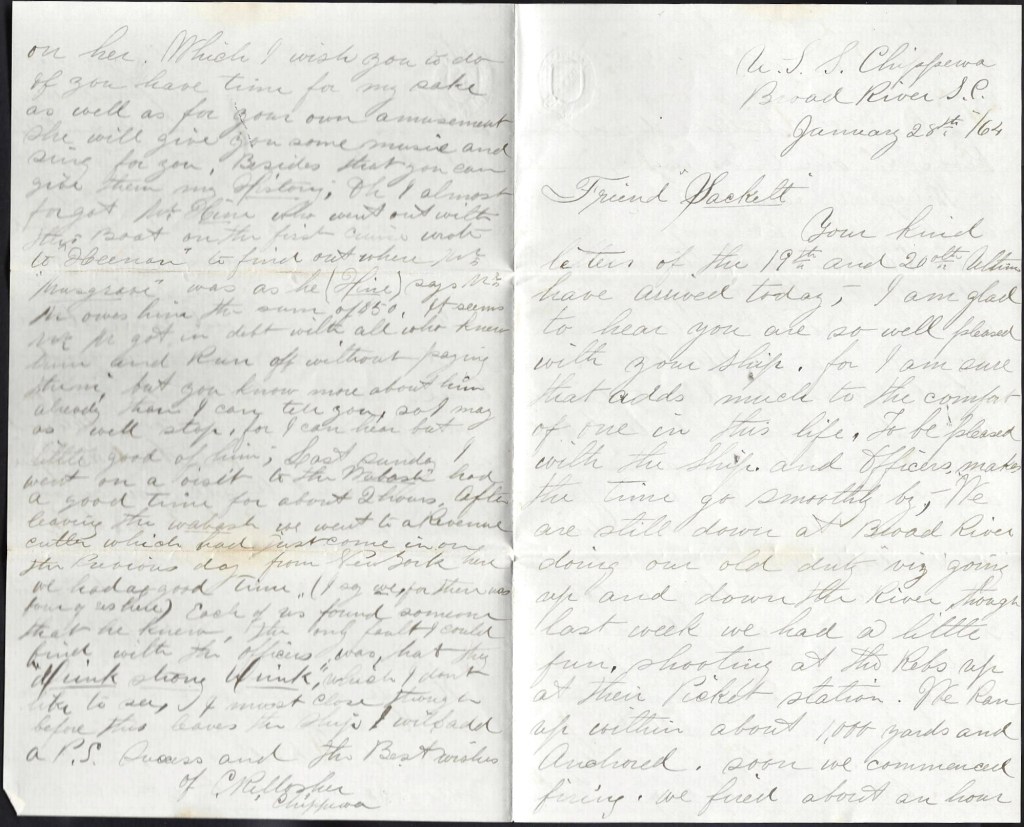 U. S. S. Chippewa
Broad River S.C.
January 28th /64
Friend "Sackett"
Your kind
letters of the 19th and 20th Ultim
have arrived today,- I am glad
to hear you are so well pleased
with your ship. for I am sure
that adds much to the comfort
of one in this life. To be pleased
with the ship. and Officers, makes
the time go smoothly by,- We
are still down at Broad River
doing our old duty viz going
up and down the River, though
last week we had a little
fun, shooting at the Rebs up
at their Picket station. We Ran
up within about 1,000 yards and
Anchored. soon we commenced
firing. we fired about an hour
on her. Which I wish you to do
if you have time for my sake
as well as for your own amusement
she will give you some music and
sing for you, Besides that you can
give them my History; Oh I almost
forgot Mr Hine who went out with
this Boat on the first cruise wrote
to "Heenan" to find out where Mr
"Musgrave" was as he (Hine) says Mr
M owes him the sum of $50, It seems
Mr M got in debt with all who knew
him and Run off without paying
them, but you know more about him
already than I can tell you, so I may
as well stop, for I can hear but
little good of him; Last sunday I
went on a visit to the "Wabash" had
a good time for about 2 hours, After
leaving the wabash we went to a Revenue
cutter which had just come in on
the Previous day from New York here
we had a good time, (I say we, for there was
four of us here) Each of us found someone
that he knew, The only fault I could
find with the officers was, that they
"drink strong drink", which I don't
like to see, I must close
before this leaves the ship I will add
a P.S. Success and the Best wishes
of
Chippewa